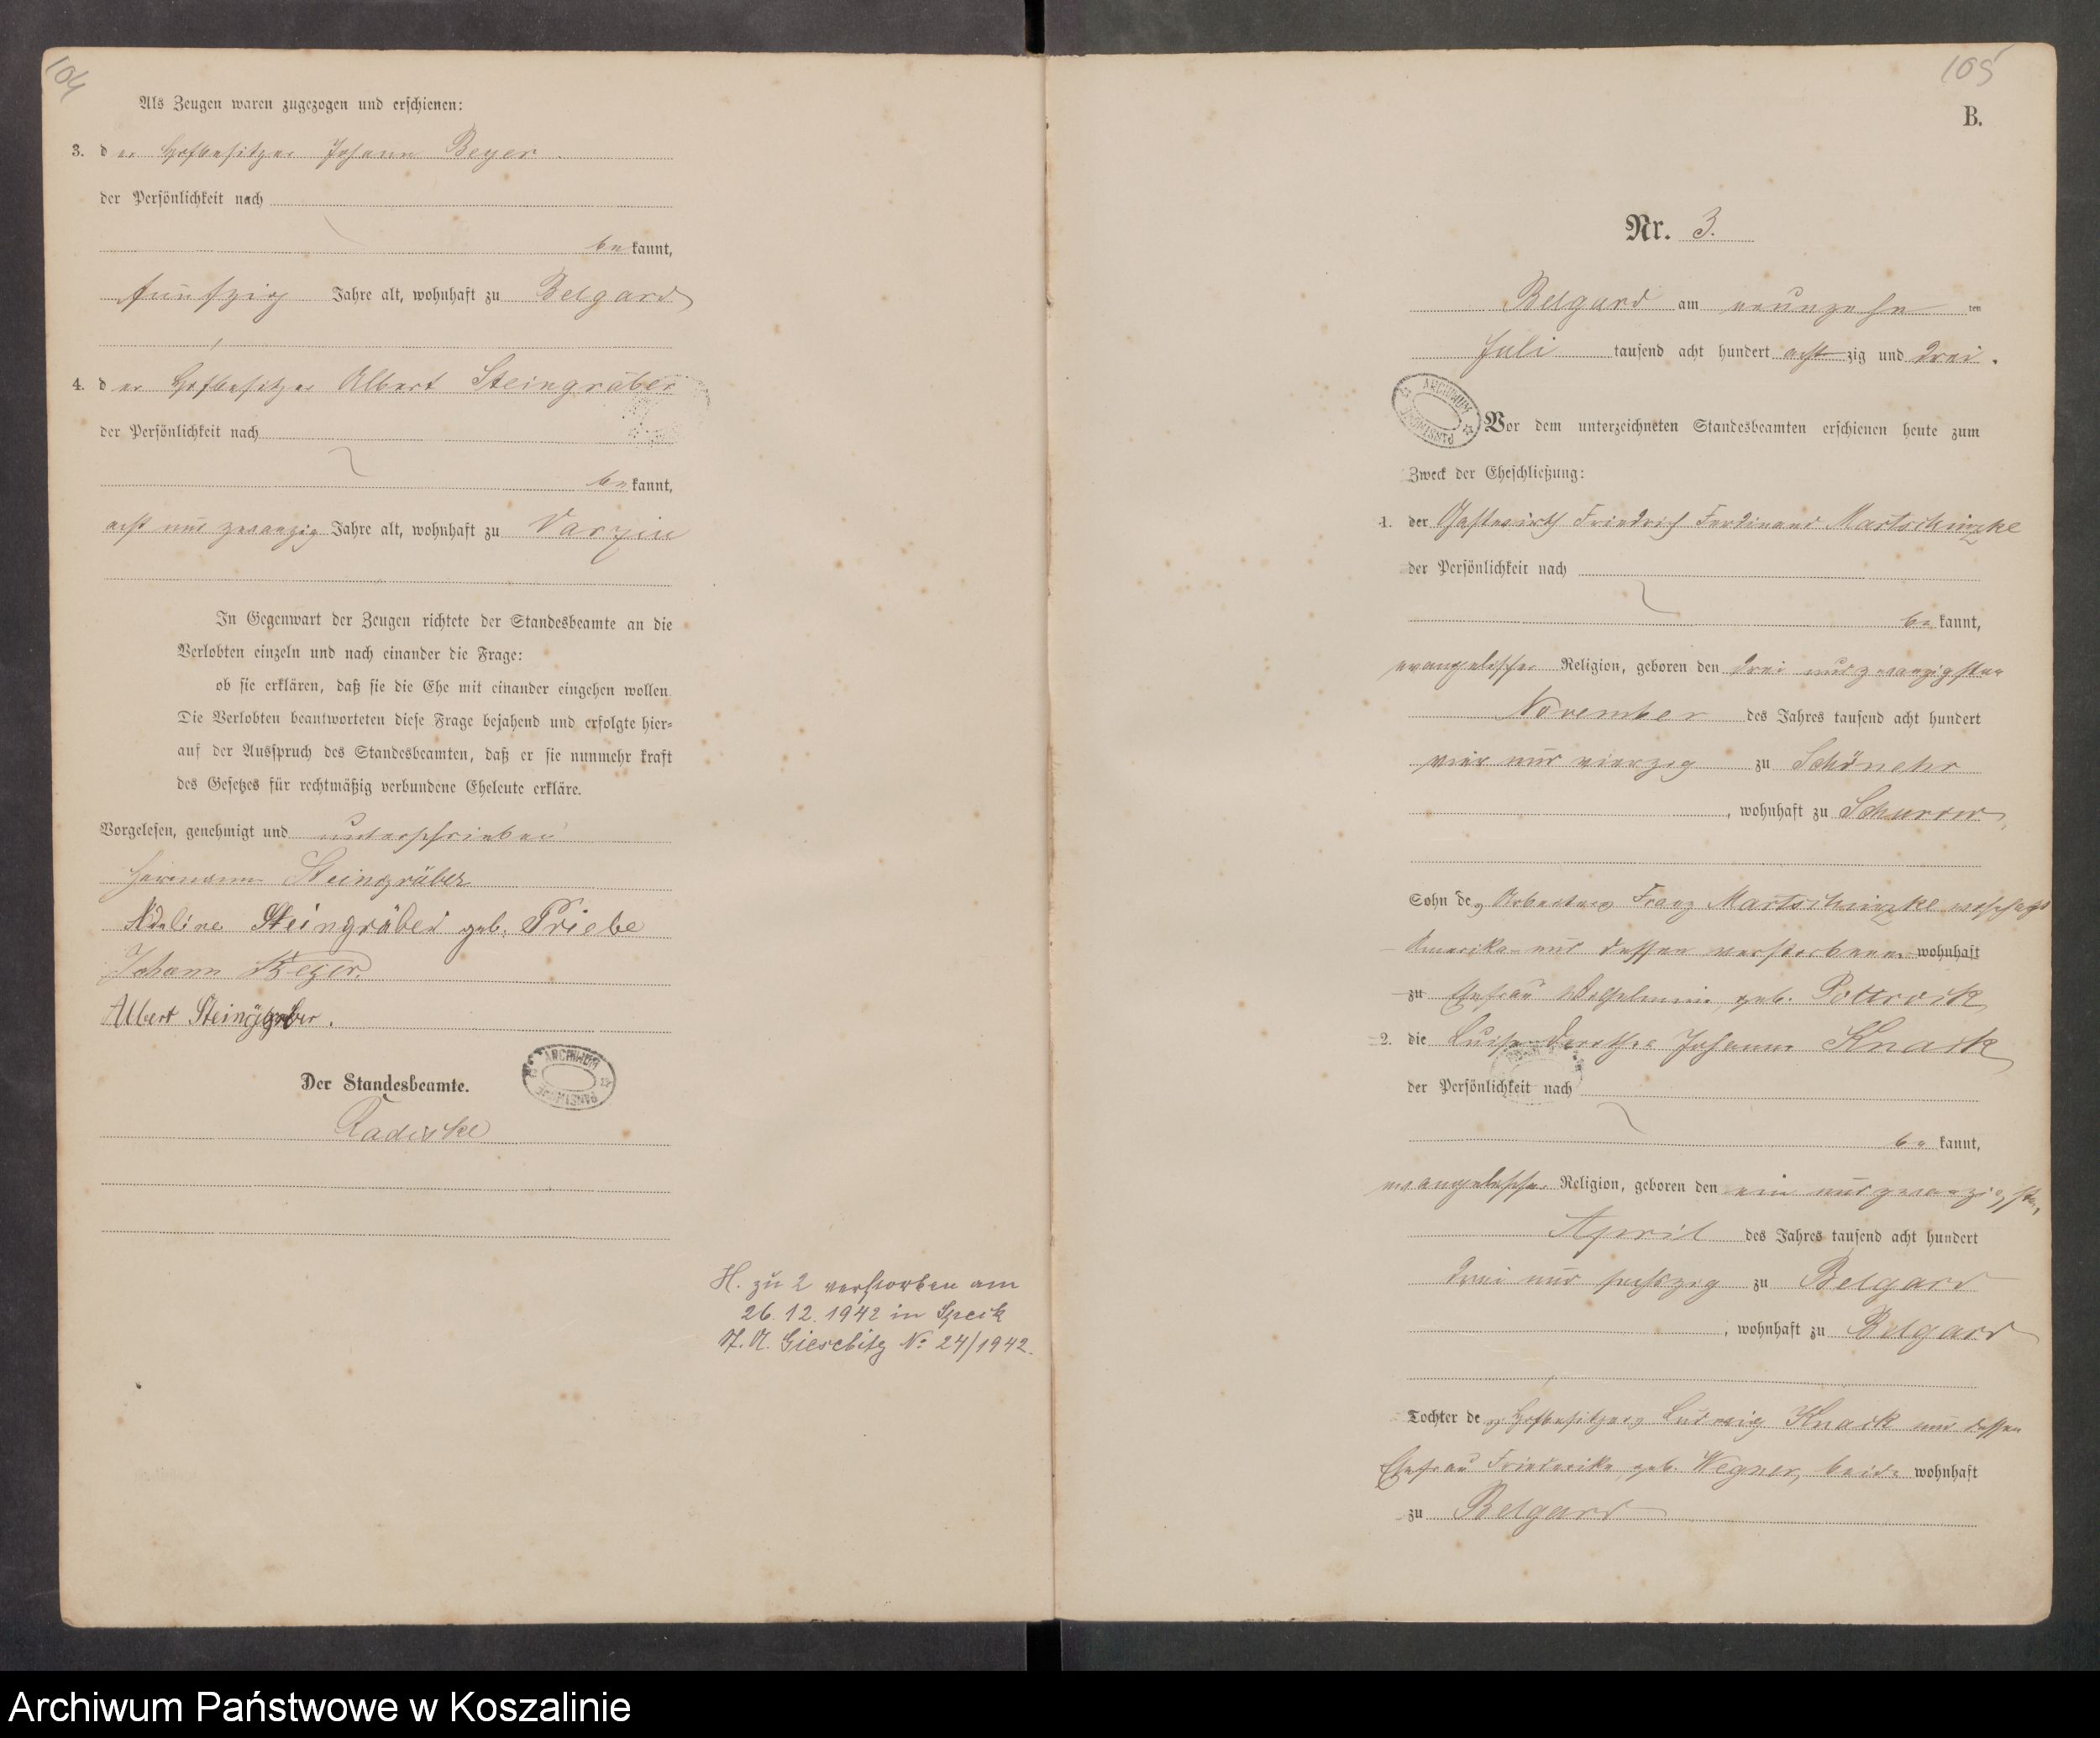 104
Als Zeugen waren zugezogen und erschienen:
3. der Hofbesitzer Johann Beyer.
der Persönlichkeit nach
bekannt,
fünfzig Jahre alt, wohnhaft zu Belgard
4. der Hofbesitzer Albert Steingräber
der Persönlichkeit nach
bekannt,
acht und zwanzig Jahre alt, wohnhaft zu Varzin
In Gegenwart der Zeugen richtete der Standesbeamte an die
Verlobten einzeln und nach einander die Frage:
ob sie erklären, daß sie die Ehe mit einander eingehen wollen.
Die Verlobten beantworteten diese Frage bejahend und erfolgte hier-
auf der Ausspruch des Standesbeamten, daß er sie nunmehr kraft
des Gesetzes für rechtmäßig verbundene Eheleute erkläre.
Vorgelesen, genehmigt und unterschrieben
Hermann Steingräber
Adeline Steingräber geb. Priebe
Johann Beyer.
Albert Steingräber.
ARCHIWUM PAŃSTWOWE
Der Standesbeamte.
Radiske
H. zu 2 verstorben am
26.12.1942 in Speck
St. A. Giesebitz No 24/1942.
105
B.
Nr. 3.
Belgard am neunzehn ten
Juli tausend acht hundert achtzig und drei.
ARCHIWUM PAŃSTWOWE
Vor dem unterzeichneten Standesbeamten erschienen heute zum
Zweck der Eheschließung:
1. der Gastwirth Friedrich Ferdinand Martschinzke
der Persönlichkeit nach
bekannt,
evangelischer Religion, geboren den drei und zwanzigsten
November des Jahres tausend acht hundert
vier und vierzig zu Schönehr
, wohnhaft zu Schurow,
Sohn des Arbeiters Franz Martschinzke wohnhaft
Amerika und dessen verstorbenen wohnhaft
zu Ehefrau Wilhelmine, geb. Pottrock
2. die Luise Dorothea Johanne Knack
der Persönlichkeit nach
bekannt,
evangelischer Religion, geboren den ein und zwanzigsten
April des Jahres tausend acht hundert
drei und sechszig zu Belgard
, wohnhaft zu Belgard
Tochter des Hofbesitzers Ludwig Knack und dessen
Ehefrau Friederike, geb. Wegner, beide wohnhaft
zu Belgard
Archiwum Państwowe w Koszalinie